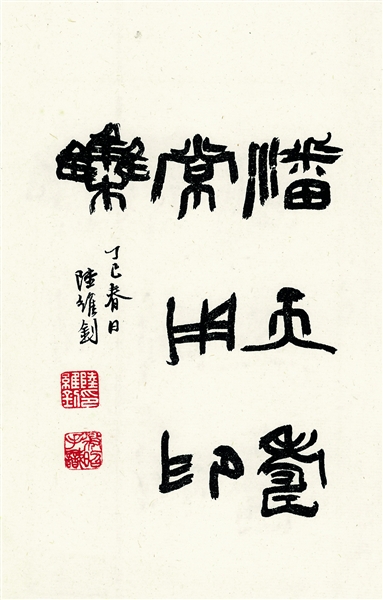 潘天壽
常用印
集
丁巳春日
陸維釗
陸印維釗